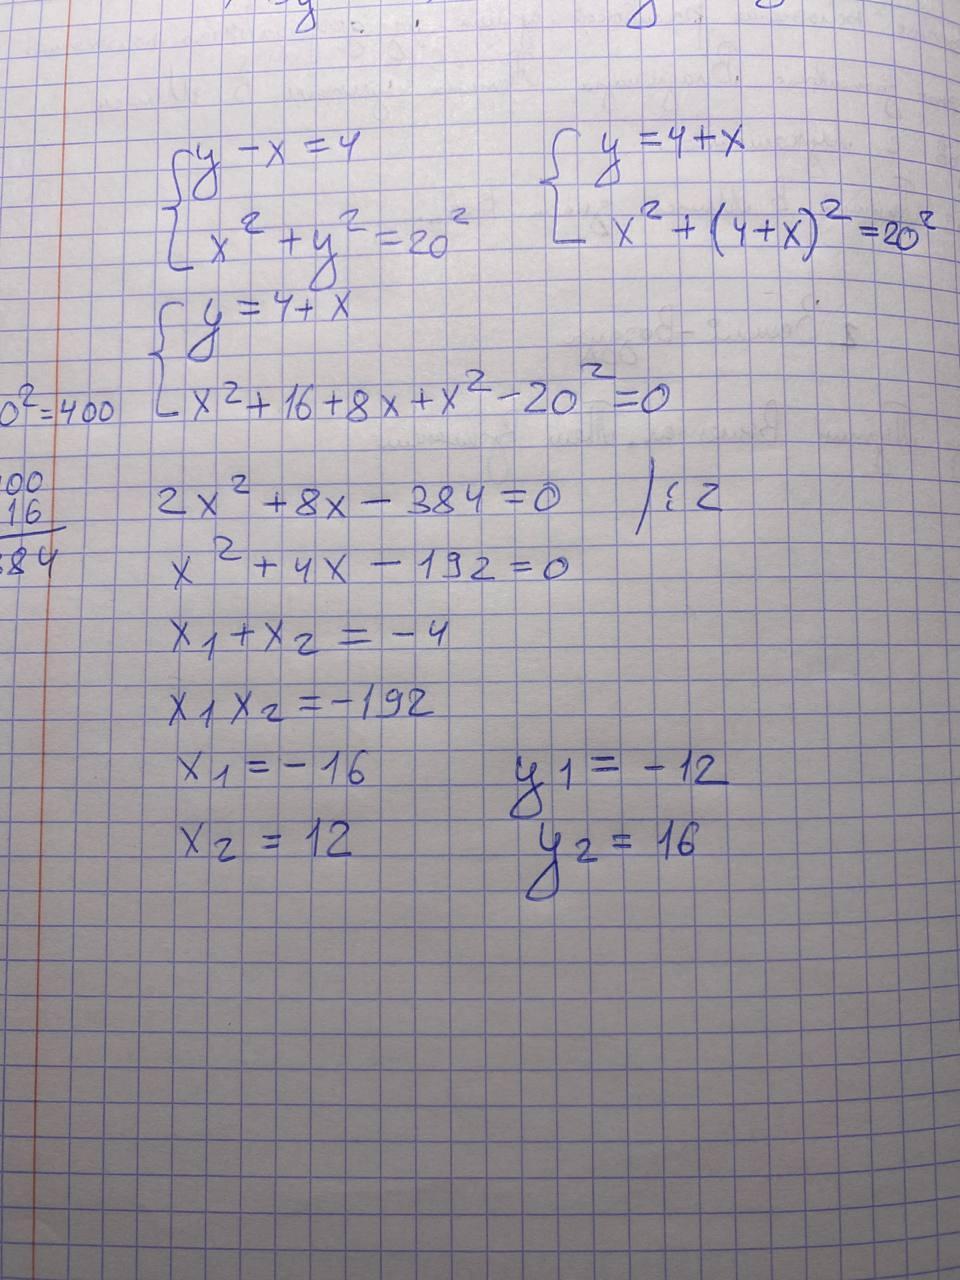 y - x = 4
x² + y² = 20²
y = 4 + x
x² + (4 + x)² = 20²
y = 4 + x
x² + 16 + 8x + x² - 20² = 0
0² = 400
00
16
84
2x² + 8x - 384 = 0 / : 2
x² + 4x - 192 = 0
x₁ + x₂ = -4
x₁ x₂ = -192
x₁ = -16 y₁ = -12
x₂ = 12 y₂ = 16